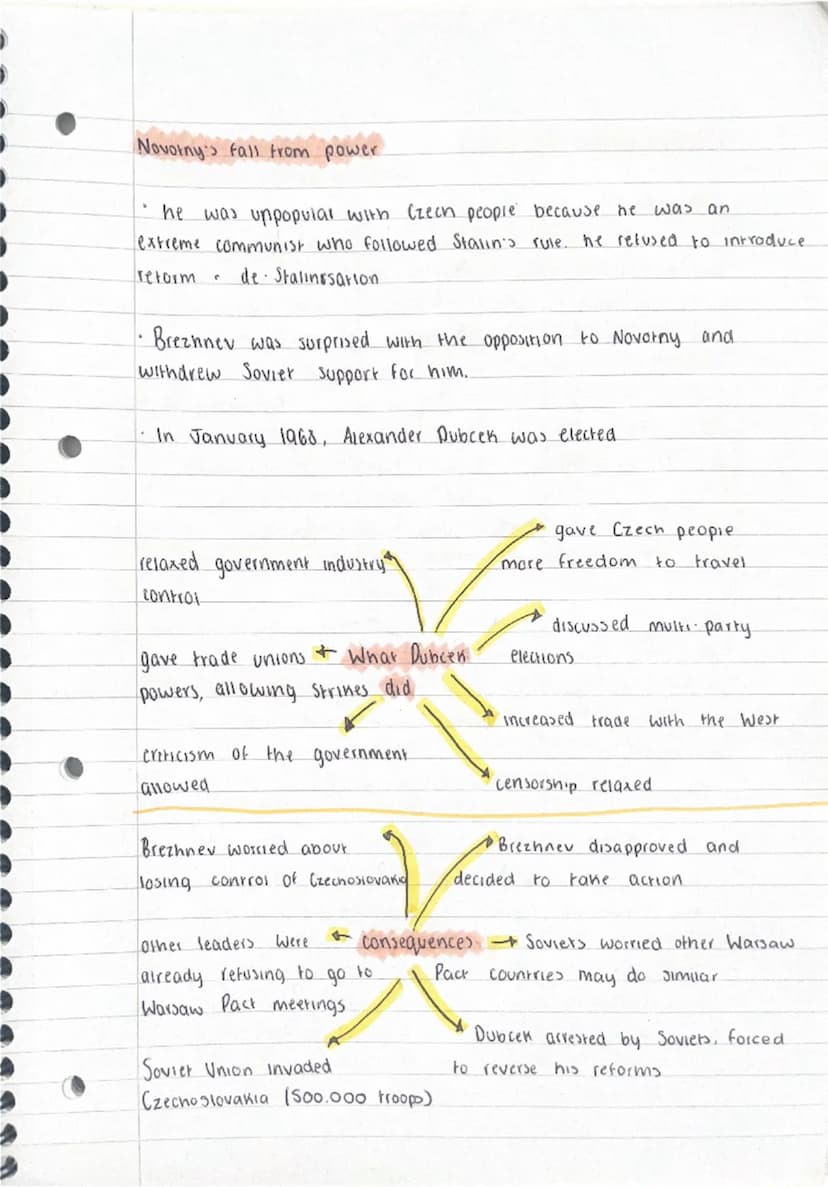 Novotny's fall from power
· he was unpopular with Czech people because he was an
extreme communist who followed Stalin's rule. he refused to introduce
reform · de-Stalinisation
· Brezhnev was surprised with the opposition to Novotny and
withdrew Soviet support for him.
· In January 1968, Alexander Dubcek was elected
gave Czech people
more freedom to travel
relaxed government industry
control
discussed multi-party
elections
What Dubcek
did
gave trade unions
powers, allowing strikes
increased trade with the West
criticism of the government
allowed
censorship relaxed
Brezhnev worried about
losing control of Czechoslovakia
Brezhnev disapproved and
decided to take action
consequences
other leaders were
already refusing to go to
Warsaw Pact meetings
Soviets worried other Warsaw
Pact countries may do similar
Dubcek arrested by Soviets, forced
to reverse his reforms
Soviet Union invaded
Czechoslovakia (500.000 troops)